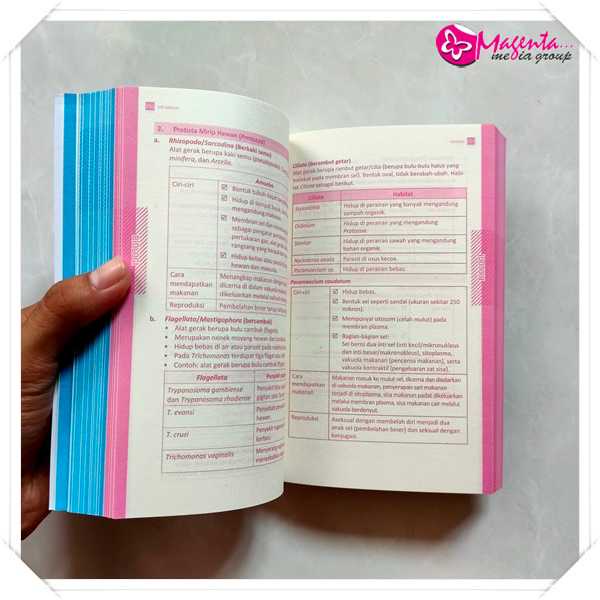 Magenta...
media group
2. Protista Mirip Hewan (Protozoa)
a. Rhizopoda/Sarcodina (Berkaki semu)
Alat gerak berupa kaki semu
minifera, dan Arcella.
Amoeba
Ciri-ciri
Bentuk tubuh
Hidup di
mengandung
Membran sel
sebagai pengatur
pertukaran gas, alat
rangsang yang
Hidup bebas atau
hewan dan manusia.
Cara
mendapatkan
makanan
Menangkap makanan
dicerna di dalam vakuola
dikeluarkan melalui
Reproduksi
Pembelahan biner
b. Flagellata/Mastigophora (bercambuk)
• Alat gerak berupa bulu cambuk (flagel).
• Merupakan nenek moyang hewan dan
• Hidup bebas di air atau parasit pada
• Pada Trichomonds terdapat tiga flagel
• Contoh: alat gerak berupa bulu cambuk
Flagellata
Trypanosoma gambiense
dan Trypanosoma rhodiense
Penyakit
T. evansi
Penyebab
T. cruzi
Penyakit
Trichomonas vaginalis
Menyerang
Ciliata (Berambut getar)
Alat gerak berupa rambut getar/cilia (berupa bulu-bulu halus yang
melekat pada membran sel). Bentuk oval, tidak berubah-ubah. Habi-
tat Ciliata sebagai berikut.
Ciliata Habitat
Hidup di perairan yang banyak mengandung
sampah organik.
Didinium
Hidup di perairan yang mengandung
Protozoa.
Stentor
Hidup di perairan sawah yang mengandung
bahan organik.
Nyctoterus ovalis Parasit di usus kecoa.
Paramaecium sp. Hidup di perairan bebas.
Paramaecium caudatum
Ciri-ciri
Hidup bebas.
Bentuk sel seperti sandal (ukuran sekitar 250
mikron).
Mempunyai sitosom (celah mulut) pada
membran plasma.
Bagian-bagian sel:
Sel berisi dua inti sel (inti kecil/mikronukleus
dan inti besar/makronukleus), sitoplasma,
vakuola makanan (pencerna makanan), serta
vakuola kontraktil (pengeluaran zat sisa).
Cara
mendapatkan
makanan
Makanan masuk ke mulut sel, dicerna dan diedarkan
di vakuola makanan, penyerapan sari makanan
terjadi di sitoplasma, sisa makanan padat dikeluarkan
melalui membran plasma, sisa makanan cair melalui
vakuola berdenyut.
Reproduksi
Aseksual dengan membelah diri menjadi dua
anak sel (pembelahan biner) dan seksual dengan
konjugasi.